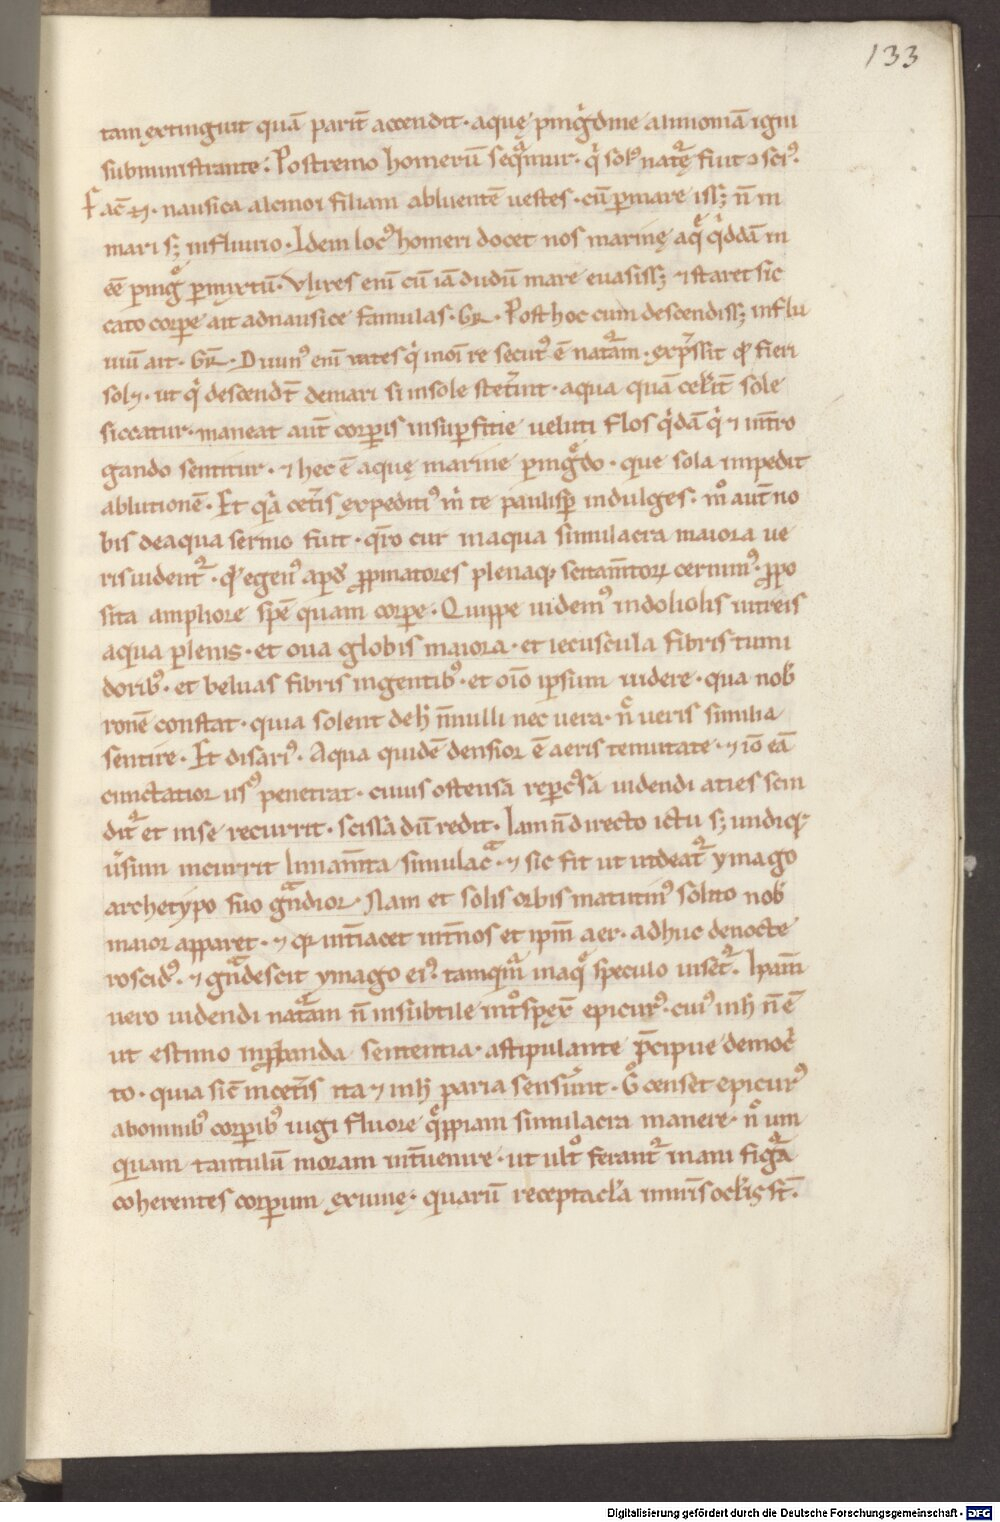 133
tam extinguit quā parit̄ accendit · aquę pinguͥdine alimoniā igni
subministrante. Postremo homerū seqͣmur · qͥ solꝰ natęͬ fuit ɔsciꝰ.
Fac̄ · nausica alcinoi filiam abluentē uestes · cū ꝑmare issꝫ n̄ in
mari sꝫ influuio · Idem locꝰ homeri docet nos marinę aqͤ qͥddā in
eē ꝑingͤ ꝑmixtū · Vlixes eni cū iādudū mare euasissꝫ ⁊ staret sic
cato corꝑe ait adnausice famulas · GR · Post hoc cum descendissꝫ influ
uiū ait · GR · Diuinꝰ eni uates qͥ inoi re secutꝰ ē natͬam · exp̄ssit qͩ fieri
solꝫ · ut qͥ descendt̄ demari si insole stetīnt · aqua quā celꝛit̄ sole
siccatur · maneat aut̄ corꝑis insuꝑficie ueluti flos qͥdā qͥ ⁊ int̄ro
gando sentitur · ⁊ hec ē aquę marine ꝑingͤdo · que sola impedit
ablutionē · Et qͥa cet̄is expeditiꝰ mͥ te paulisꝑ indulges · mͦ aut̄ no
bis deaqua sermo fuit · qͬo cur inaqua simulacra maiora ue
ris uidentͬ · qͩ egenꝰ apd̄ ꝓpinatores plenaqꝫ scitam̄torꝝ cernimꝰ · ꝓpo
sita ampliore spē quam corꝑe · Quippe uidemꝰ indoliolis uitreis
aqua plenis · et oua globis maiora · et iecuscula fibris tumi
doribꝰ · et beluas fibris ingentibꝰ · et oīo ipsum uidere · qua nob̄
ronē constat · quia solent deh̄ n̄nulli nec uera · nͨ ueris similia
sentire · Et disariꝰ · Aqua quidē densior ē aeris tenuitate · ⁊ iō eā
cunctatior usꝰ penetrat · cuius ostensā reꝑcꝰsā uidendi aties scin
ditͬ et inse recurrit · scissa dū redit · Iam n̄ directo ictu sꝫ undiqꝫ
ūsum incurrit liniam̄ta simulacͣ · ⁊ sic fit ut uideatͬ ymago
archetypo suo gͣndior · Nam et solis orbis matutinꝰ solito nob̄
maior apparet · ⁊ qꝫ int̄iacet int̄nos et ipm̄ aer · adhuc denocte
roscidꝰ · ⁊ gͣndescit ymago eiꝰ tamqͣm inaqͤ speculo uisetͬ. Ipam̄
uero uidendi natͬam n̄ insubtile int̄spex̄ epicurꝰ · cuiꝰ inh̄ n̄ ē
ut estimo inꝓbanda sententia · astipulante p̄cipue democͥ
to · quia sic̄ incet̄is ita ⁊ inh̄ paria senserunt · Gͦ censet epicurꝰ
abomnibꝰ corꝑibꝰ iugi fluore qͤpiam simulacra manere · nͨ um
quam tantulū moram int̄uenire · ut ultͦ ferantͬ inani figͬa
coherentes corꝑum exuuię · quarū receptacl̄a innr̄is ocl̄is st̄.
Digitalisierung gefördert durch die Deutsche Forschungsgemeinschaft · DFG